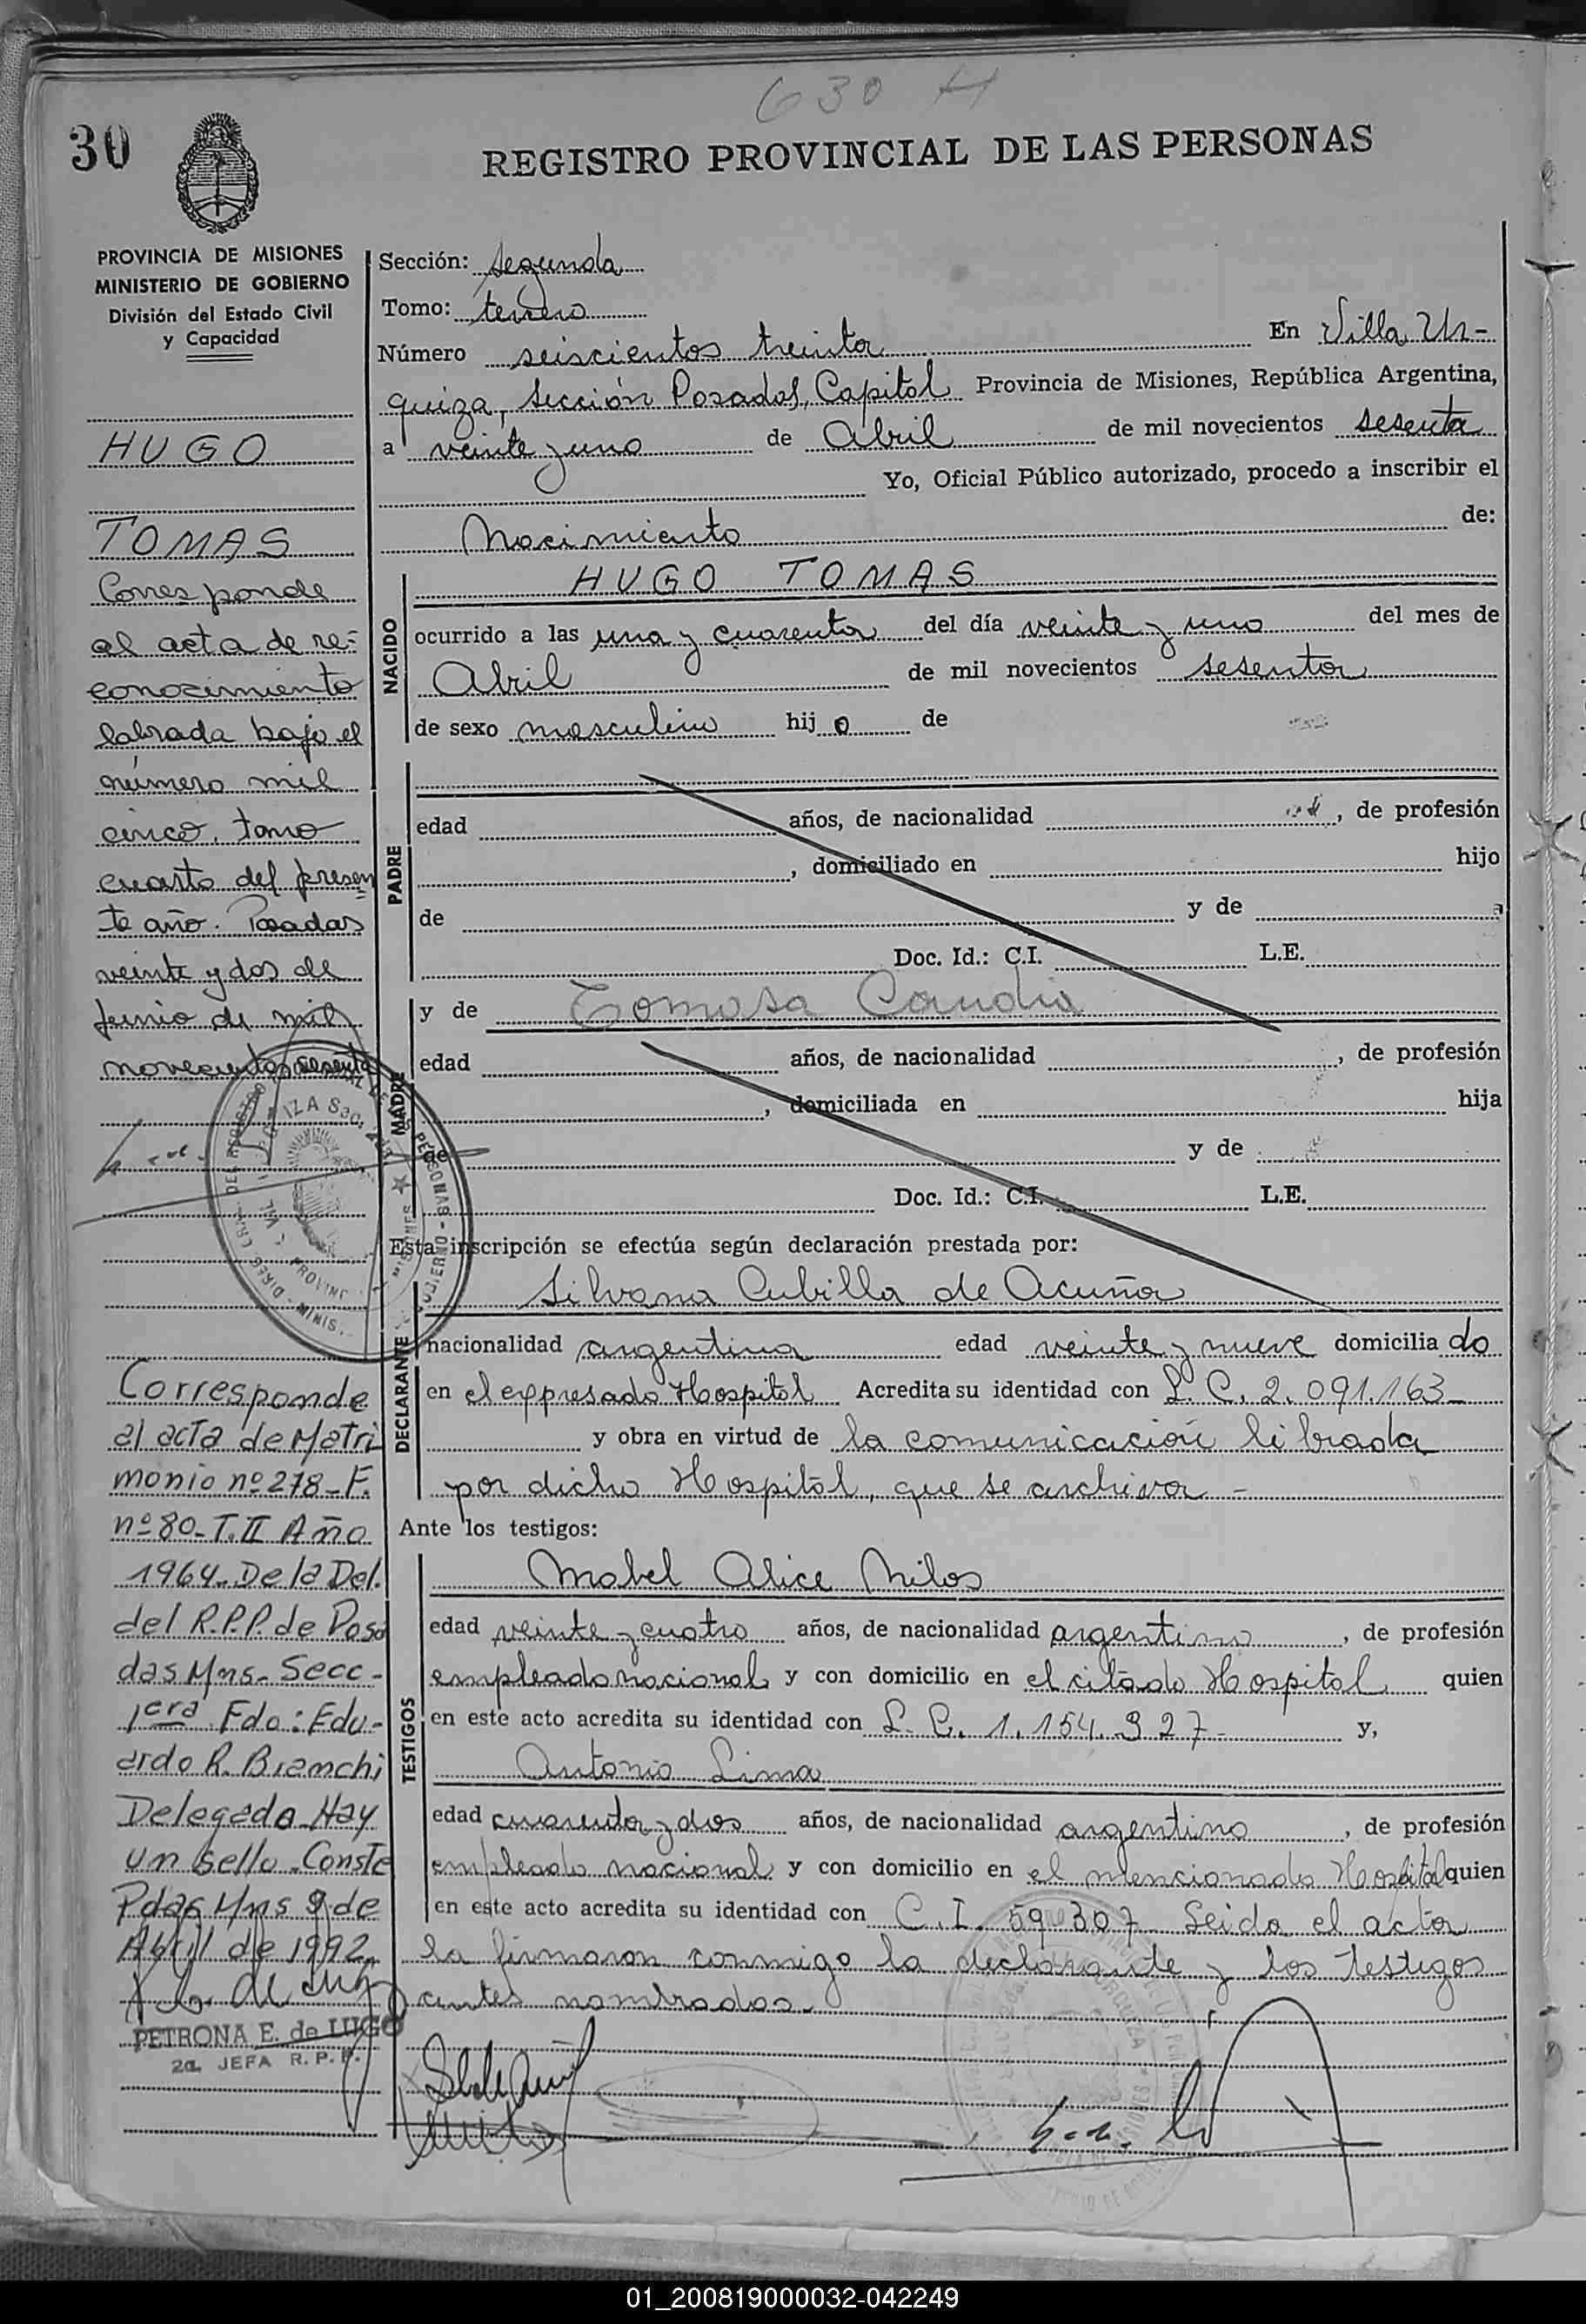 630 H
30
REGISTRO PROVINCIAL DE LAS PERSONAS
PROVINCIA DE MISIONES
MINISTERIO DE GOBIERNO
División del Estado Civil
y Capacidad
HUGO
TOMAS
Corresponde
al acta de re=
conocimiento
labrada bajo el
número mil
cinco, tomo
cuarto del presen
te año. Posadas
veinte y dos de
junio de mil
novecientos sesenta
Corresponde
al acta de Matri
monio nº 278-F.
nº 80-T.II Año
1964. De la Del.
del R.P.P. de Posa
das Mns. Secc-
1era Fdo: Edu-
ardo R. Bianchi
Delegado Hay
un sello. Conste
Pdas Mns 9 de
Abril de 1992
PETRONA E. de LUGO
2a JEFA R. P. P.
Sección: segunda
Tomo: tercero
Número seiscientos treinta En Villa Ur-
quiza, sección Posadas, Capital Provincia de Misiones, República Argentina,
a veinte y uno de Abril de mil novecientos sesenta
Yo, Oficial Público autorizado, procedo a inscribir el
Nacimiento de:
NACIDO
HUGO TOMAS
ocurrido a las una y cuarenta del día veinte y uno del mes de
Abril de mil novecientos sesenta
de sexo masculino hijo de
PADRE
edad años, de nacionalidad , de profesión
, domiciliado en hijo
de y de
Doc. Id.: C.I. L.E.
MADRE
y de Tomasa Candia
edad años, de nacionalidad , de profesión
, domiciliada en hija
de y de
Doc. Id.: C.I. L.E.
Esta inscripción se efectúa según declaración prestada por:
DECLARANTE
Silvana Cubilla de Acuña
nacionalidad argentina edad veinte y nueve domiciliado
en el expresado Hospital Acredita su identidad con L. C. 2.091.163-
y obra en virtud de la comunicación librada
por dicho Hospital, que se archiva -
Ante los testigos:
TESTIGOS
Mabel Alice Milos
edad veinte y cuatro años, de nacionalidad argentino , de profesión
empleado nacional y con domicilio en el citado Hospital quien
en este acto acredita su identidad con L. C. 1.154.927- y,
Antonio Lima
edad cuarenta y dos años, de nacionalidad argentino , de profesión
empleado nacional y con domicilio en el mencionado Hospital quien
en este acto acredita su identidad con C. I. 59.307- Leida el acta
la firmaron conmigo la declarante y los testigos
antes nombrados.
01_200819000032-042249